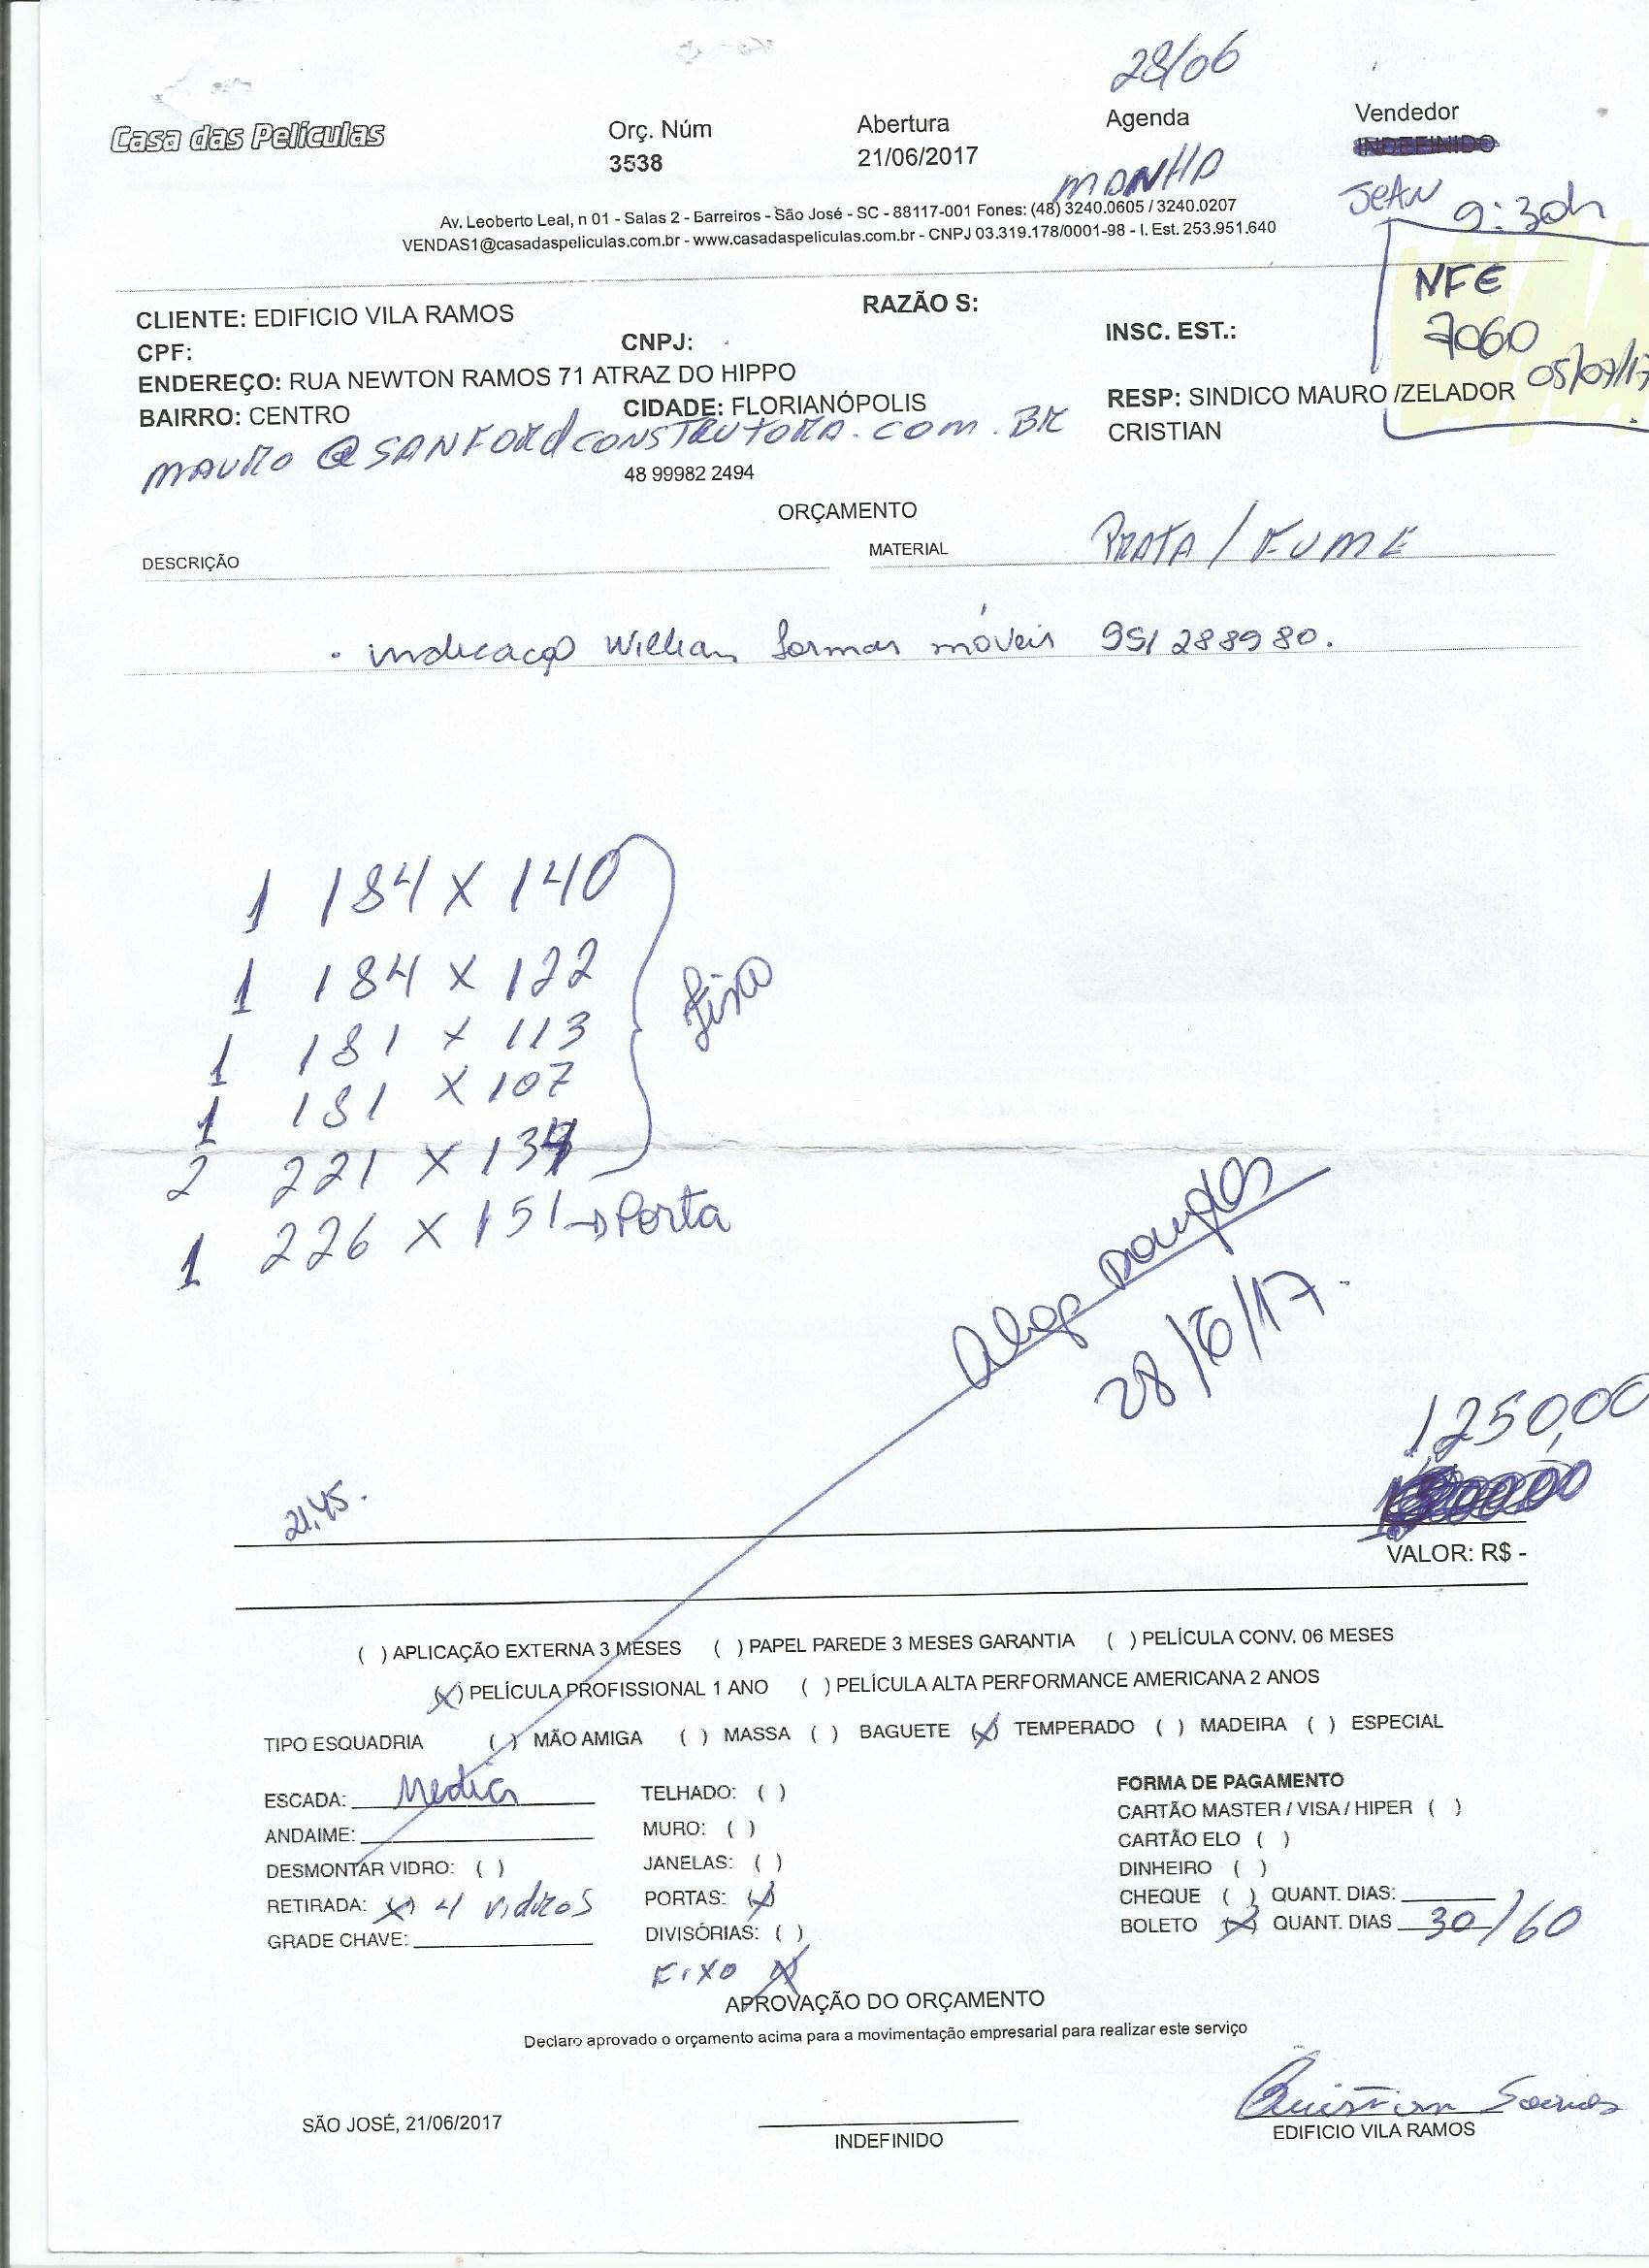 28/06
Casa das Películas
Orç. Núm
3538
Abertura
21/06/2017
Agenda
MANHA
Vendedor
INDEFINIDO
JEAN 9:30h
Av. Leoberto Leal, n 01 - Salas 2 - Barreiros - São José - SC - 88117-001 Fones: (48) 3240.0605 / 3240.0207
VENDAS1@casadaspeliculas.com.br - www.casadaspeliculas.com.br - CNPJ 03.319.178/0001-98 - I. Est. 253.951.640
NFE
7060
05/07/17
CLIENTE: EDIFICIO VILA RAMOS
RAZÃO S:
CPF:
CNPJ:
INSC. EST.:
ENDEREÇO: RUA NEWTON RAMOS 71 ATRAZ DO HIPPO
BAIRRO: CENTRO
CIDADE: FLORIANÓPOLIS
RESP: SINDICO MAURO /ZELADOR
CRISTIAN
MAURO@SANFORDCONSTRUTORA.COM.BR
48 99982 2494
ORÇAMENTO
DESCRIÇÃO
MATERIAL
PRATA / FUME
. indicaçao Willian formas móveis 951288980.
1 184 X 140
1 184 X 122
1 181 X 113
1 181 X 107
2 221 X 134
fixo
1 226 X 151 → Porta
Douglas
28/6/17.
1250,00
21,45.
VALOR: R$ -
( ) APLICAÇÃO EXTERNA 3 MESES ( ) PAPEL PAREDE 3 MESES GARANTIA ( ) PELÍCULA CONV. 06 MESES
(X) PELÍCULA PROFISSIONAL 1 ANO ( ) PELÍCULA ALTA PERFORMANCE AMERICANA 2 ANOS
TIPO ESQUADRIA ( ) MÃO AMIGA ( ) MASSA ( ) BAGUETE (X) TEMPERADO ( ) MADEIRA ( ) ESPECIAL
ESCADA: Media
ANDAIME:
DESMONTAR VIDRO: ( )
RETIRADA: (X) 4 vidros
GRADE CHAVE:
TELHADO: ( )
MURO: ( )
JANELAS: ( )
PORTAS: (X)
DIVISÓRIAS: ( )
FIXO X
FORMA DE PAGAMENTO
CARTÃO MASTER / VISA / HIPER ( )
CARTÃO ELO ( )
DINHEIRO ( )
CHEQUE ( ) QUANT. DIAS:
BOLETO (X) QUANT. DIAS 30/60
APROVAÇÃO DO ORÇAMENTO
Declaro aprovado o orçamento acima para a movimentação empresarial para realizar este serviço
SÃO JOSÉ, 21/06/2017
INDEFINIDO
EDIFICIO VILA RAMOS